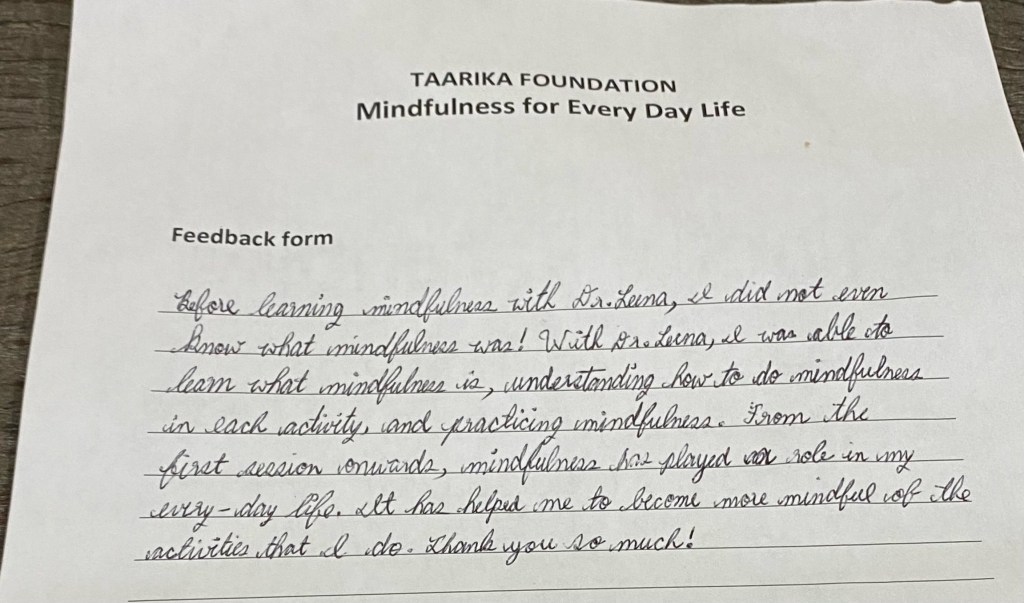 TAARIKA FOUNDATION
Mindfulness for Every Day Life
Feedback form
Before learning mindfulness with Dr. Leena, I did not even
know what mindfulness was! With Dr. Leena, I was able to
learn what mindfulness is, understanding how to do mindfulness
in each activity, and practicing mindfulness. From the
first session onwards, mindfulness has played a role in my
every-day life. It has helped me to become more mindful of the
activities that I do. Thank you so much!